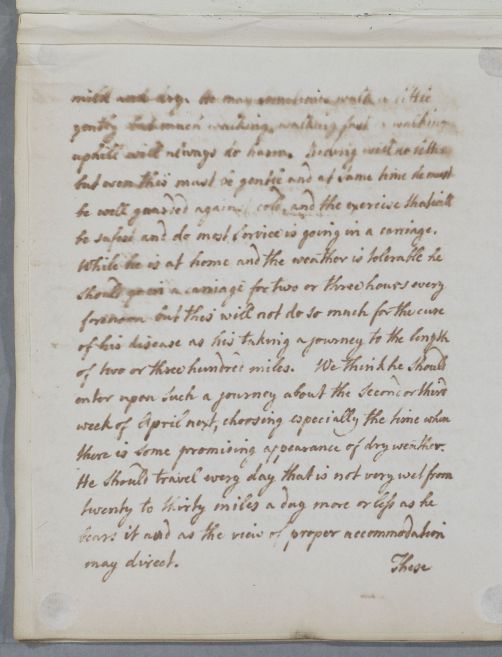 mild and dry. He may sometimes walk a little
gently but much walking, walking fast or walking
uphill will always do harm. Riding will do better
but even this must be gentle and at same time he must
be well guarded against cold, and the exercise that will
be safest and do most service is going in a carriage.
While he is at home and the weather is tolerable he
should go in a carriage for two or three hours every
forenoon but this will not do so much for the cure
of his disease as his taking a journey to the length
of two or three hundred miles. We think he should
enter upon such a journey about the second or third
week of April next, choosing especially the time when
there is some promising appearance of dry weather.
He should travel every day that is not very wet from
twenty to thirty miles a day more or less as he
bears it and as the view of proper accommodation
may direct.
These